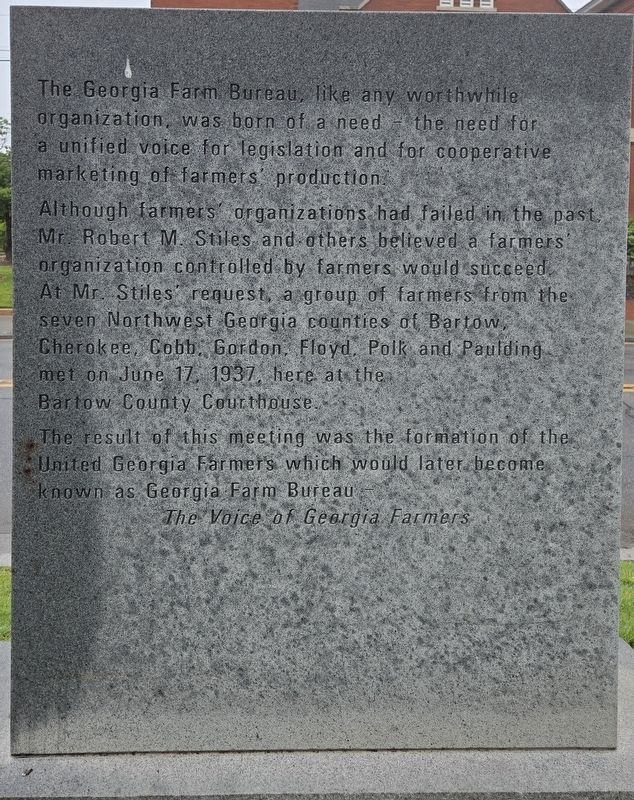 The Georgia Farm Bureau, like any worthwhile
organization, was born of a need – the need for
a unified voice for legislation and for cooperative
marketing of farmers' production.
Although farmers' organizations had failed in the past,
Mr. Robert M. Stiles and others believed a farmers'
organization controlled by farmers would succeed.
At Mr. Stiles' request, a group of farmers from the
seven Northwest Georgia counties of Bartow,
Cherokee, Cobb, Gordon, Floyd, Polk and Paulding
met on June 17, 1937, here at the
Bartow County Courthouse.
The result of this meeting was the formation of the
United Georgia Farmers which would later become
known as Georgia Farm Bureau –
The Voice of Georgia Farmers